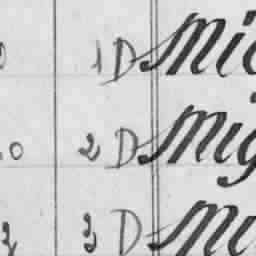 1 D Mic
0 2 D Mig
2 3 D Mi